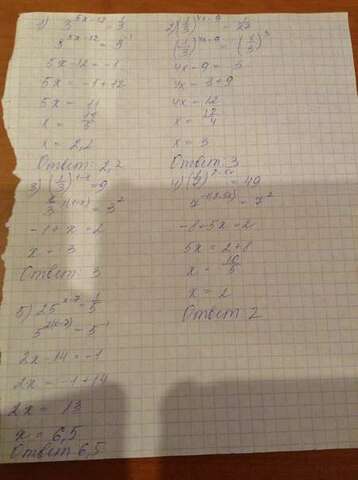 1) 3^(5x-12) = 1/3
3^(5x-12) = 3^(-1)
5x-12 = -1
5x = -1+12
5x = 11
x = 11/5
x = 2,2
Ответ: 2,2
2) (1/3)^(4x-9) = 1/27
(1/3)^(4x-9) = (1/3)^3
4x-9 = 3
4x = 3+9
4x = 12
x = 12/4
x = 3
Ответ: 3
3) (1/3)^(1-x) = 9
3^(-1(1-x)) = 3^2
-1+x = 2
x = 3
Ответ: 3
4) = 49
= 7^2
-8+5x = 2
5x = 2+8
x = 10/5
x = 2
Ответ 2
5) 25^(x-7) = 1/5
5^(2(x-7)) = 5^(-1)
2x-14 = -1
2x = -1+14
2x = 13
x = 6,5
Ответ 6,5